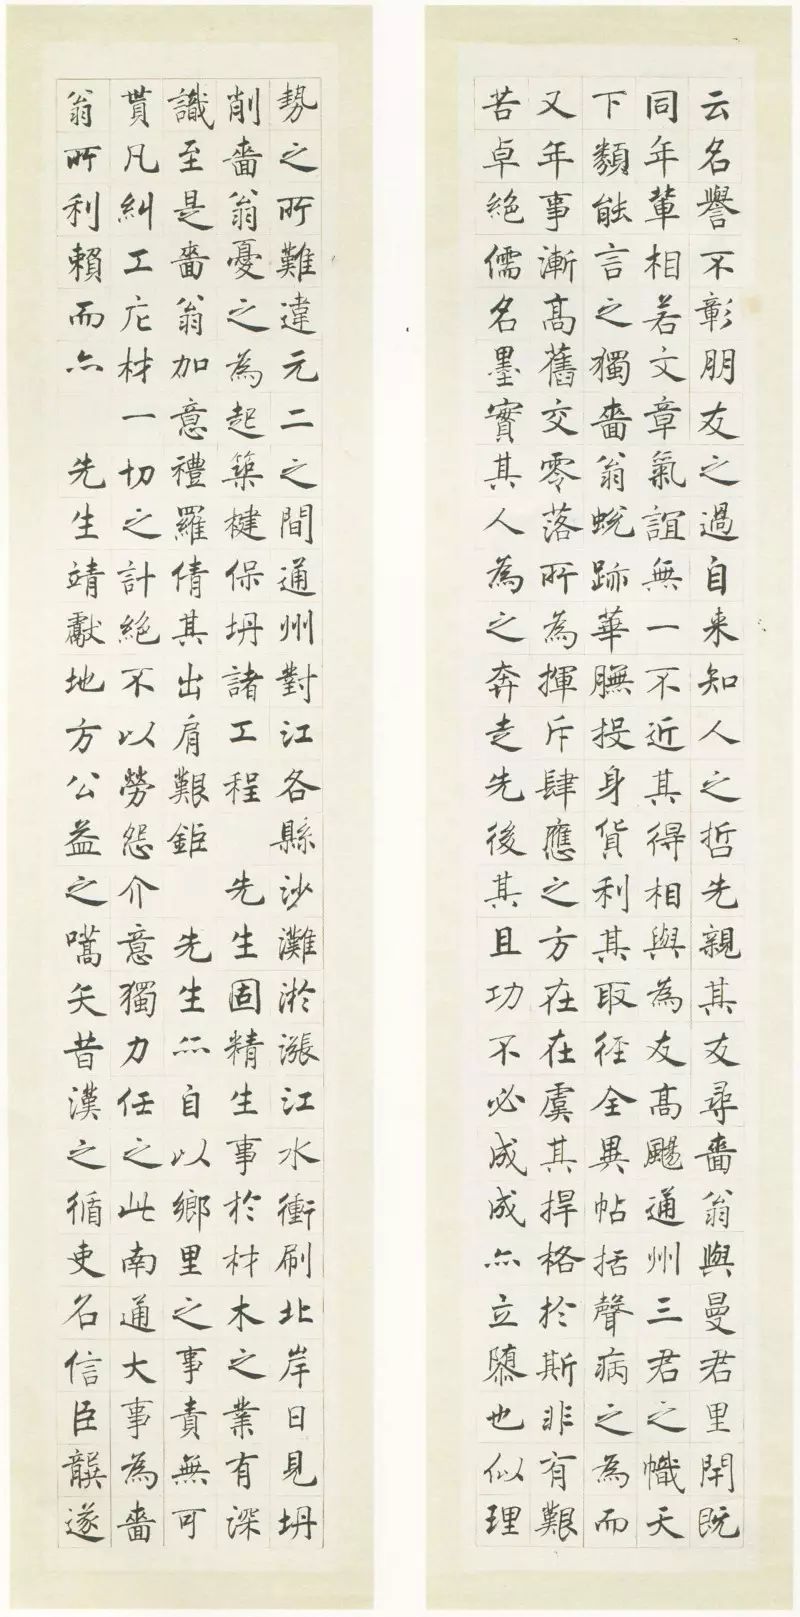 云名譽不彰朋友之過自来知人之哲先親其友尋嗇翁與曼君里閈既
同年輩相若文章氣誼無一不近其得相與為友高颺通州三君之幟天
下類能言之獨嗇翁蛻跡華膴投身貨利其取徑全異帖括聲病之為而
又年事漸高舊交零落所為揮斥肆應之方在在虞其捍格於斯非有艱
苦卓絕儒名墨實其人為之奔走先後其且功不必成成亦立隳也似理
勢之所難違元二之間通州對江各縣沙灘淤漲江水衝刷北岸日見坍
削嗇翁憂之為起築楗保坍諸工程 先生固精生事於材木之業有深
識至是嗇翁加意禮羅倩其出肩艱鉅 先生亦自以鄉里之事責無可
貰凡糾工庀材一切之計絕不以勞怨介意獨力任之此南通大事為嗇
翁所利賴而亦 先生靖獻地方公益之嚆矢昔漢之循吏名信臣龔遂